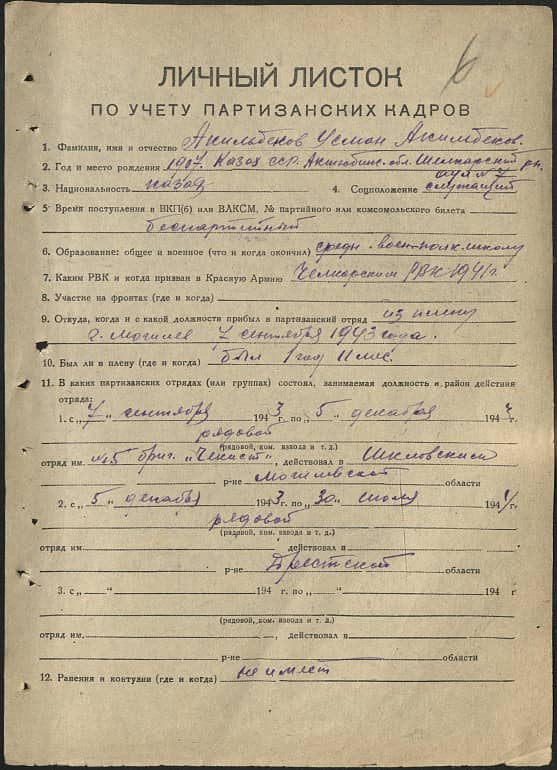 6
ЛИЧНЫЙ ЛИСТОК
ПО УЧЕТУ ПАРТИЗАНСКИХ КАДРОВ
1. Фамилия, имя и отчество Акильбеков Усман Акильбеков.
2. Год и место рождения 1907. Казах ССР. Актюбинс. обл. Шелкарский рн.
аул № 7
3. Национальность казах 4. Соцположение служащий
5 Время поступления в ВКП(б) или ВЛКСМ, № партийного или комсомольского билета
беспартийный
6. Образование: общее и военное (что и когда окончил) средн. воен. школу
7. Каким РВК и когда призван в Красную Армию Челкарским РВК 1941 г.
8. Участие на фронтах (где и когда)
9. Откуда, когда и с какой должности прибыл в партизанский отряд из плена
г. Могилев 7 сентября 1943 года.
10. Был ли в плену (где и когда) был 1 год 11 мес.
11. В каких партизанских отрядах (или группах) состоял, занимаемая должность и район действия
отряда:
1. с „ 7 " сентября 1943 г. по „ 5 " декабря 194 г
рядовой
(рядовой, ком. взвода и т. д.)
отряд им. №5 бриг. „Чекист", действовал в Шкловским
р-не Могилевской области
2. с „ 5 " декабря 1943 г. по „ 30 " июля 1944 г.
рядовой
(рядовой, ком. взвода и т. д.)
отряд им. действовал в
р-не Брестской области
3. с „ " 194 г. по „ " 194 г
(рядовой, ком. взвода и т. д.)
отряд им. , действовал в
р-не области
12. Ранения и контузии (где и когда) не имеет